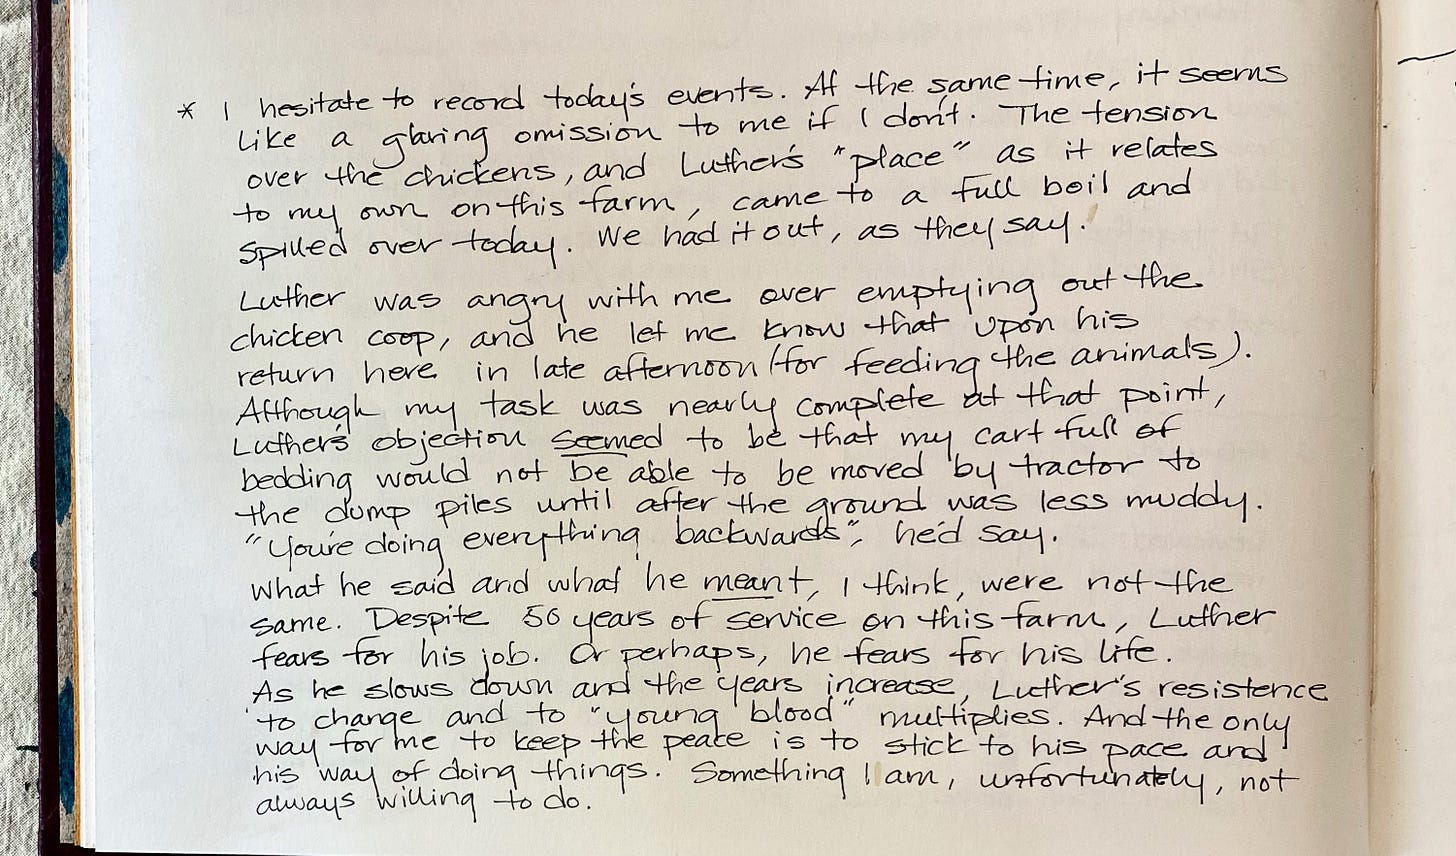 * I hesitate to record today's events. At the same time, it seems
like a glaring omission to me if I don't. The tension
over the chickens, and Luther's "place" as it relates
to my own on this farm, came to a full boil and
spilled over today. We had it out, as they say.
Luther was angry with me over emptying out the
chicken coop, and he let me know that upon his
return here in late afternoon (for feeding the animals).
Although my task was nearly complete at that point,
Luther's objection seemed to be that my cart full of
bedding would not be able to be moved by tractor to
the dump piles until after the ground was less muddy.
"You're doing everything backwards", he'd say.
What he said and what he meant, I think, were not the
same. Despite 50 years of service on this farm, Luther
fears for his job. Or perhaps, he fears for his life.
As he slows down and the years increase, Luther's resistence
to change and to "young blood" multiplies. And the only
way for me to keep the peace is to stick to his pace and
his way of doing things. Something I am, unfortunately, not
always willing to do.